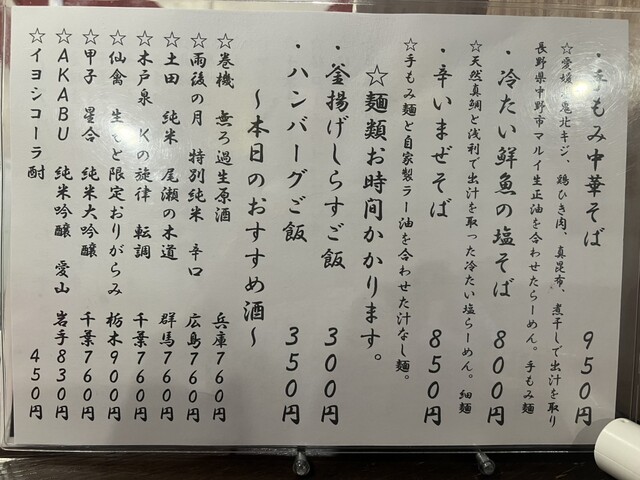 ・手もみ中華そば 950円
☆愛媛県鬼北キジ、鶏ひき肉、真昆布、煮干しで出汁を取り
長野県中野市マルイ生正油を合わせたらーめん。手もみ麺
・冷たい鮮魚の塩そば 800円
☆天然真鯛と浅利で出汁を取った冷たい塩らーめん。細麺
・辛いまぜそば 850円
☆手もみ麺と自家製ラー油を合わせた汁なし麺。
☆麺類お時間かかります。
・釜揚げしらすご飯 300円
・ハンバーグご飯 350円
〜本日のおすすめ酒〜
☆巻機 無ろ過生原酒 兵庫760円
☆雨後の月 特別純米 辛口 広島760円
☆土田 純米 尾瀬の木道 群馬760円
☆木戸泉 Kの旋律 転調 千葉760円
☆仙禽 生もと限定おりがらみ 栃木900円
☆甲子 星合 純米大吟醸 千葉760円
☆AKABU 純米吟醸 愛山 岩手830円
☆イヨシコーラ酎 450円